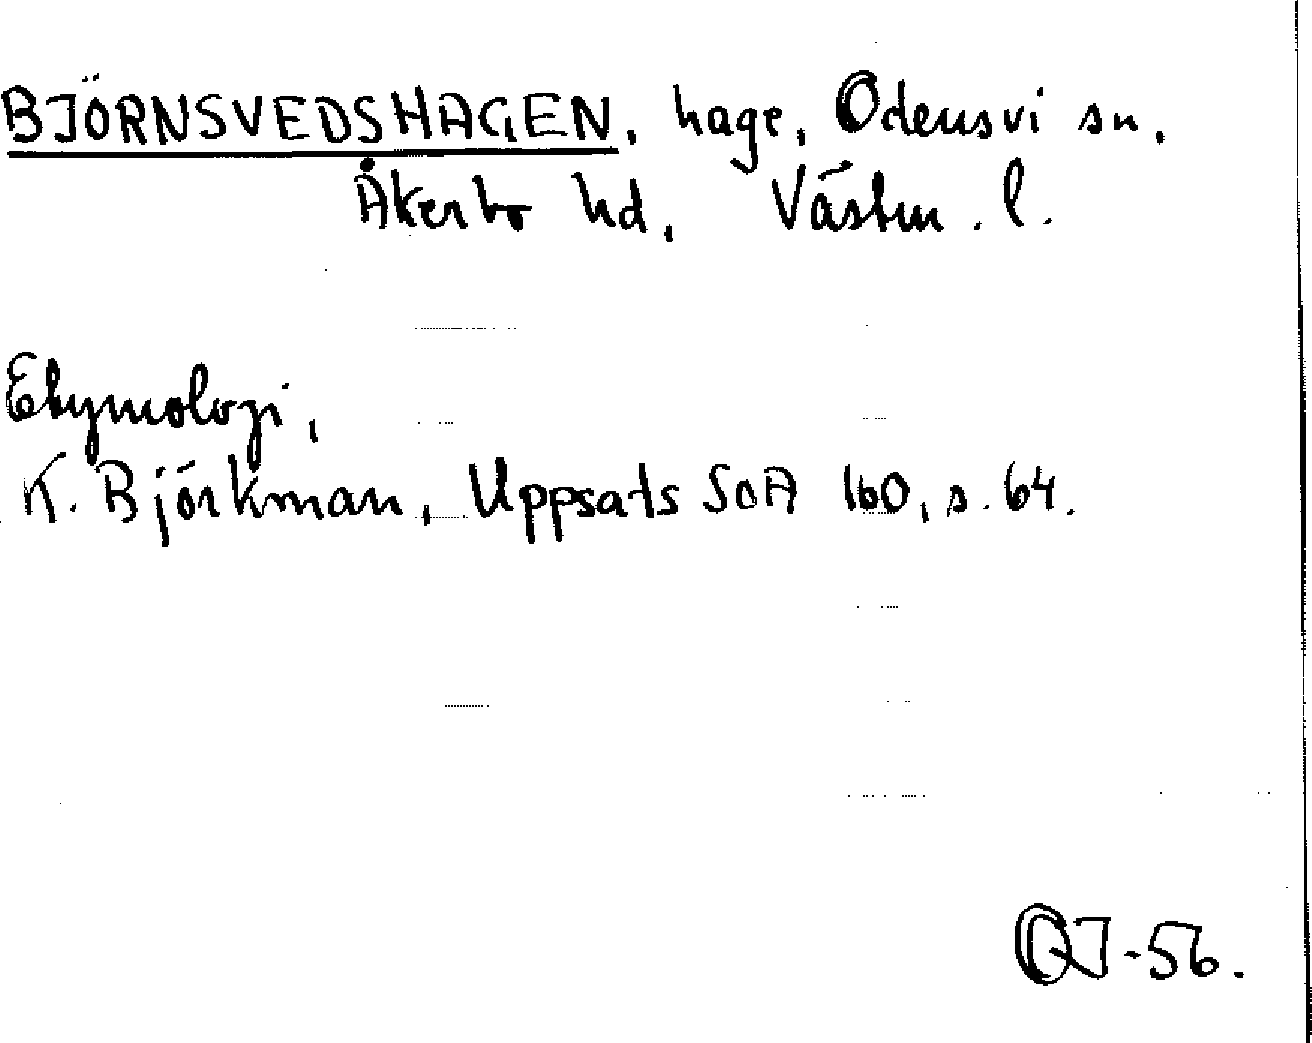 BJÖRNSVEDSHAGEN, hage, Odensvi sn,
Åkerbo hd, Västm. l.
Etymologi,
K. Björkman, Uppsats SOA 160, s. 64.
QJ-56.